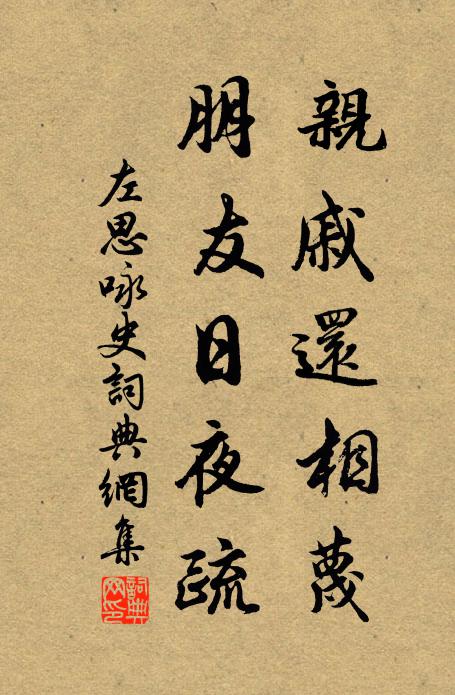 親戚還相蔑
朋友日夜疏
左思咏史詞典網集
詞典網印